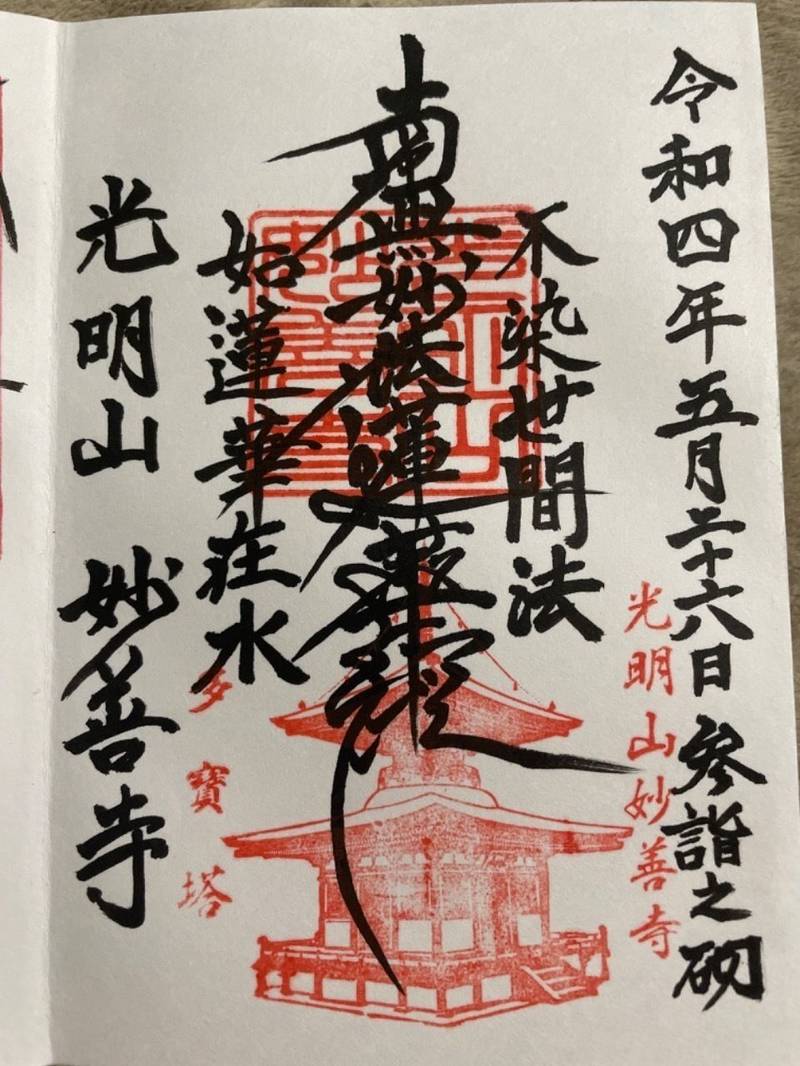 令和四年五月二十六日 参詣之砌
光明山妙善寺
不染世間法
南無妙法蓮華経
如蓮華在水
多寳塔
光明山 妙善寺